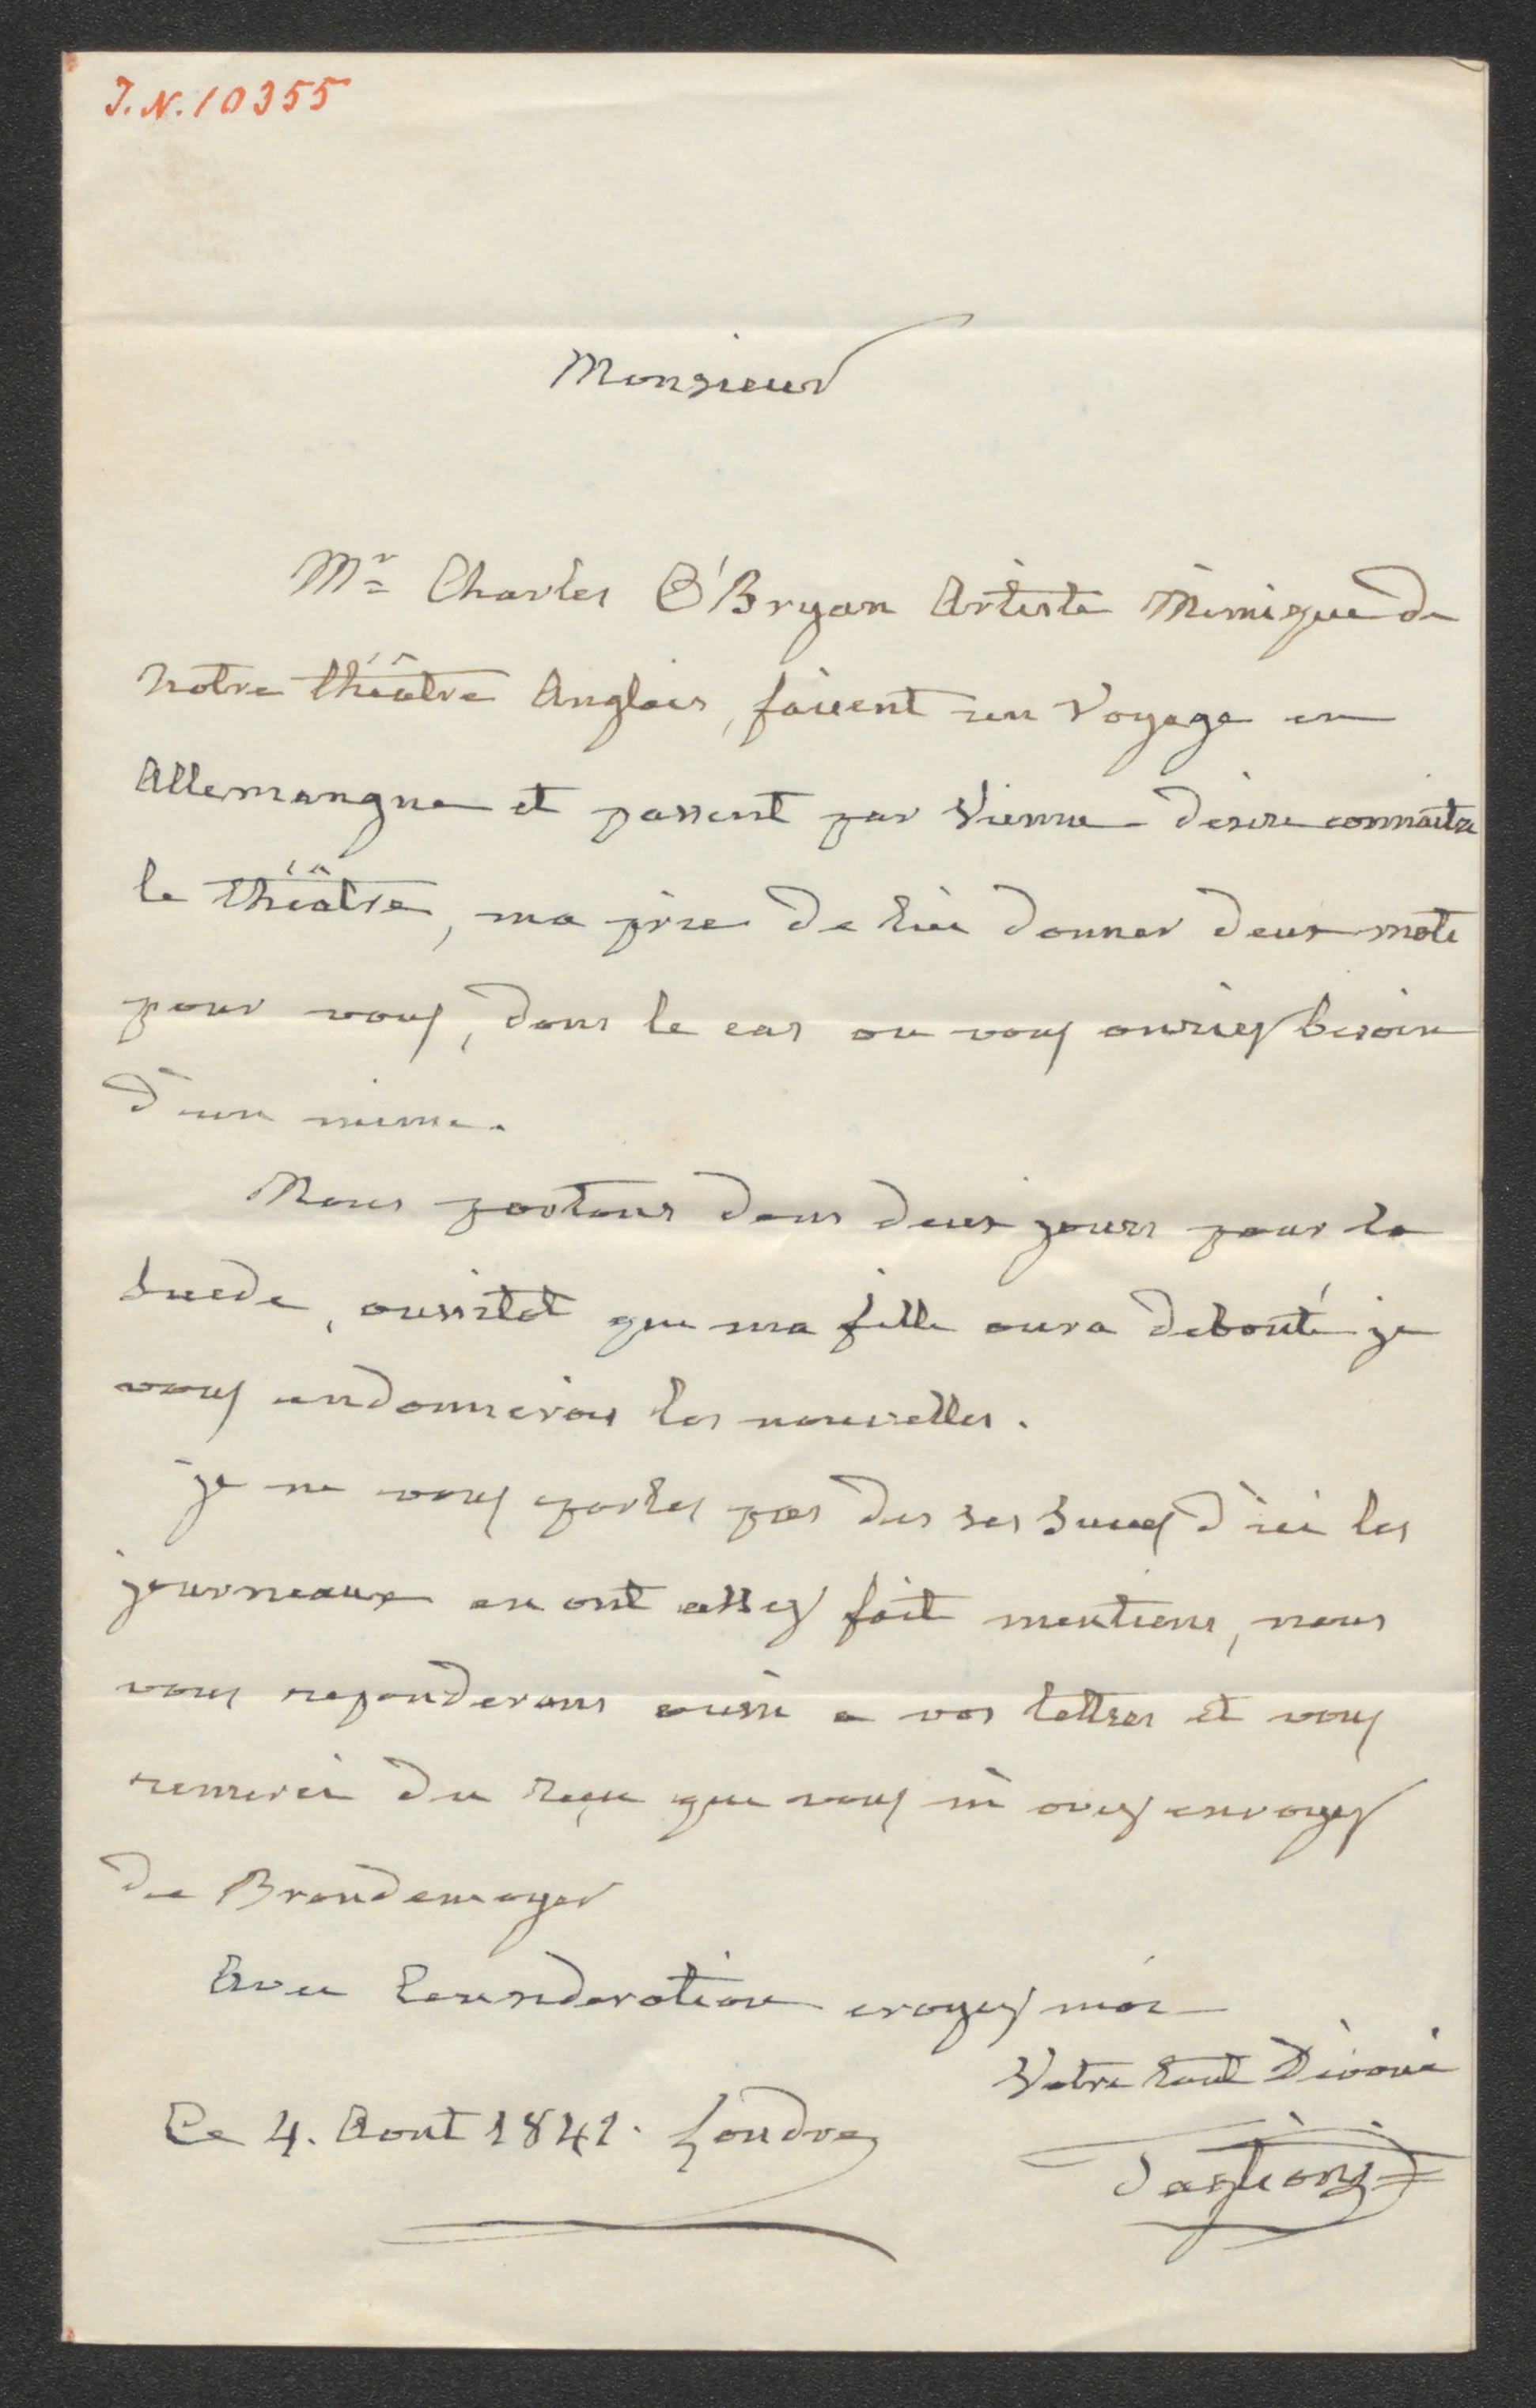 J.N.10355
Monsieur
Mr Charles O'Bryan Artiste Mimique de
notre théâtre Anglais, faisent un voyage en
Allemangne et passent par Vienne desire connaitre
le théâtre, ma prie de lui donner deux mots
pour vous, dans le cas ou vous auriez besoin
d'un mime.
Nous partons dans deux jours pour la
Suede, aussitot que ma fille aura debouté je
vous en donnerais les nouvelles.
je ne vous parles pas des ses succes d'ici les
journeaux en ont assez fait mentions, nous
vous reponderons aussi a vos lettres et vous
remerci du reçu que vous m'avez envoyez
de Brandemayer
Avec Consideration croyez moi
Votre tout Dévoué
Ce 4. Aout 1841. Londres
Taglioni